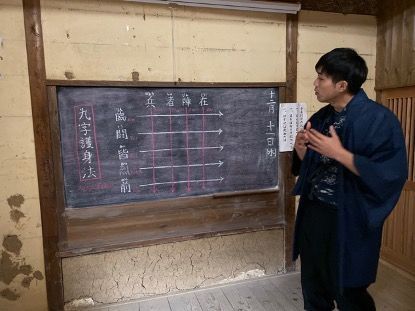 十二月 十一日(水)
兵 者 陣 在
臨
闘
皆
烈
前
九字護身法